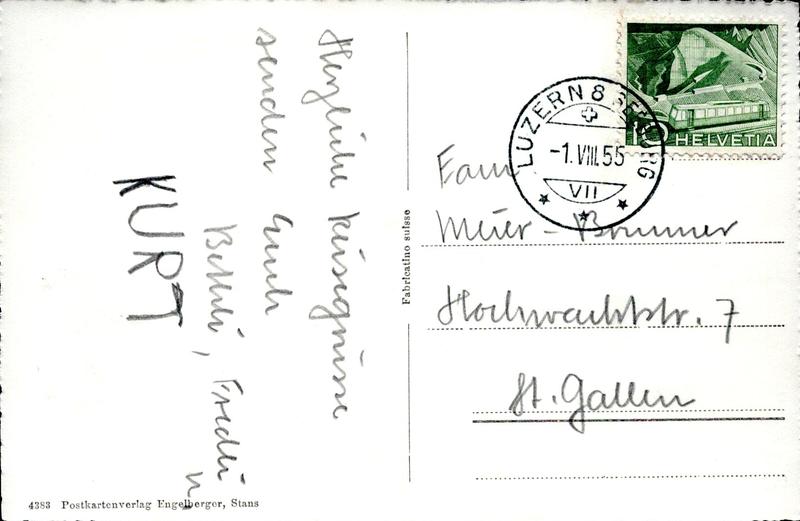 Herzliche Feriengrüsse
senden Euch
Bethli, Fredli u.
KURT
4383 Postkartenverlag Engelberger, Stans
Fabricatino suisse
LUZERN 8
-1.VIII.55
VII
10 HELVETIA
Fam
Meier - Brunner
Hochwachtstr. 7
St. Gallen